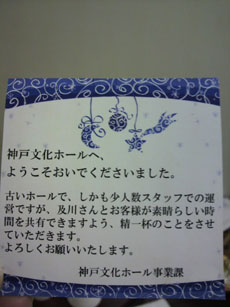 神戸文化ホールへ、
ようこそおいでくださいました。
古いホールで、しかも少人数スタッフでの運
営ですが、及川さんとお客様が素晴らしい時
間を共有できますよう、精一杯のことをさせ
ていただきます。
よろしくお願いいたします。
神戸文化ホール事業課